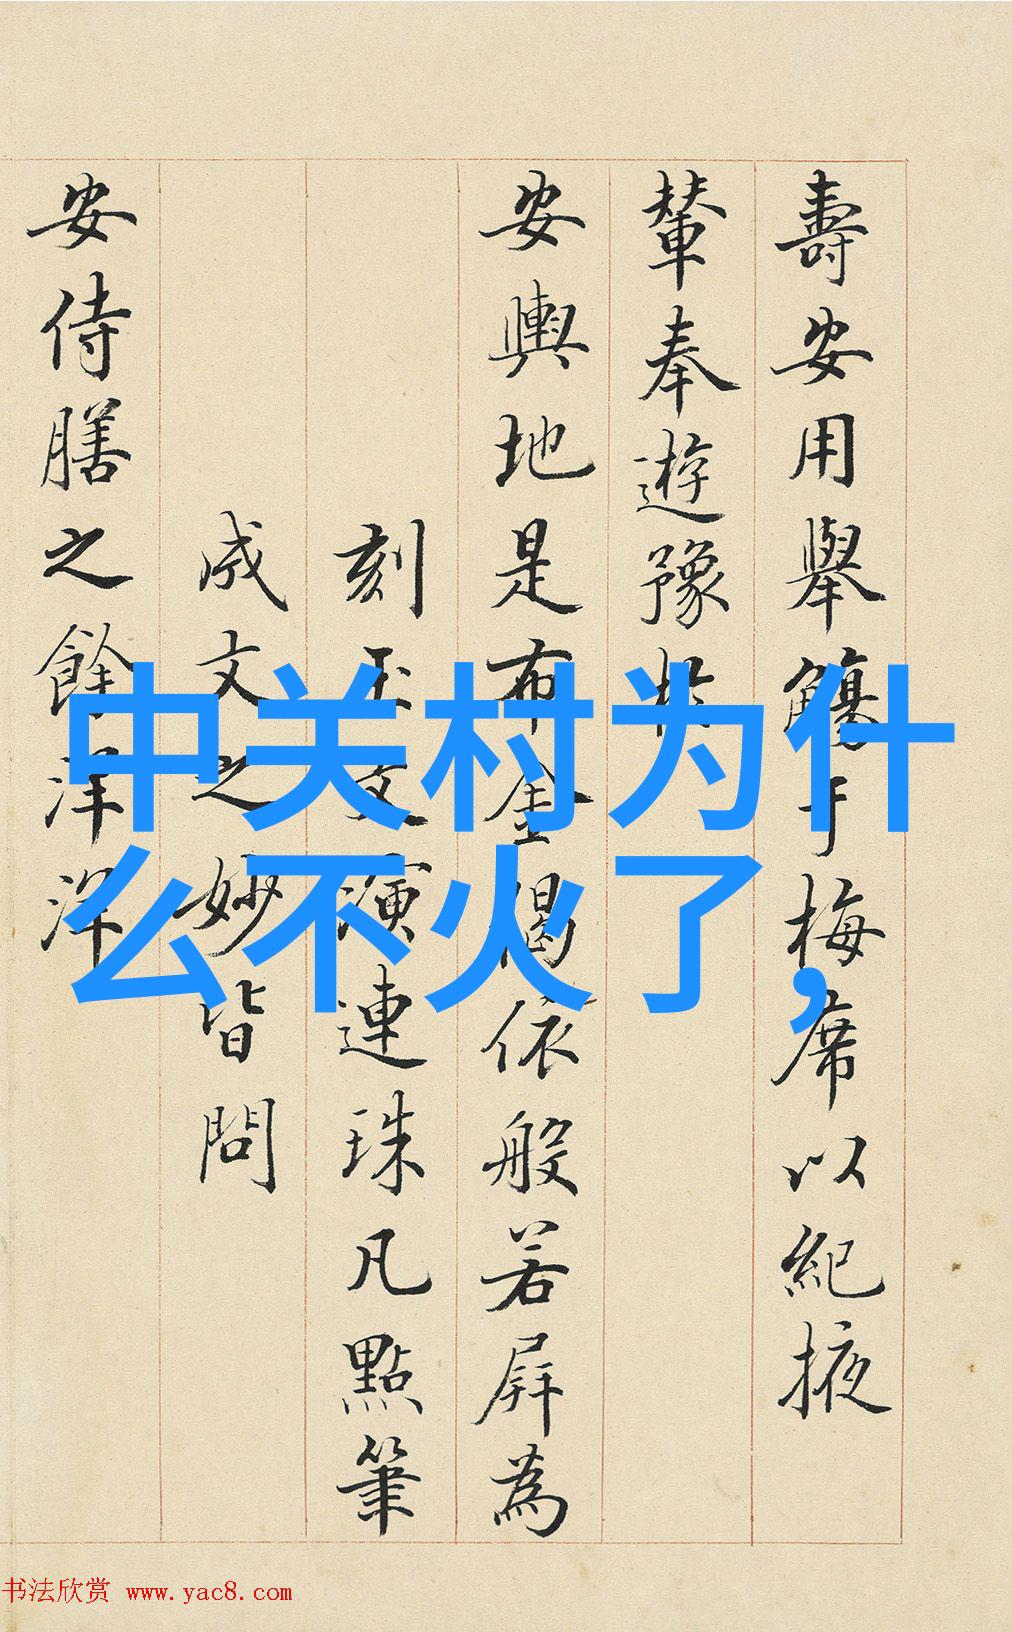 壽安用舉觴于梅席以紀掖
輦奉遊豫於
安輿地是布金偈依般若屏為
刻玉文演連珠凡點筆
成文之妙皆問
安侍膳之餘洋洋
中关村为什
么不火了,
书法欣赏 www.yac8.com